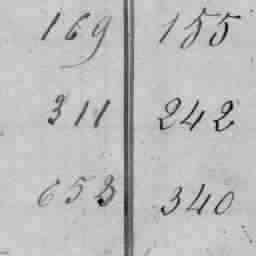 169 155
311 242
653 340